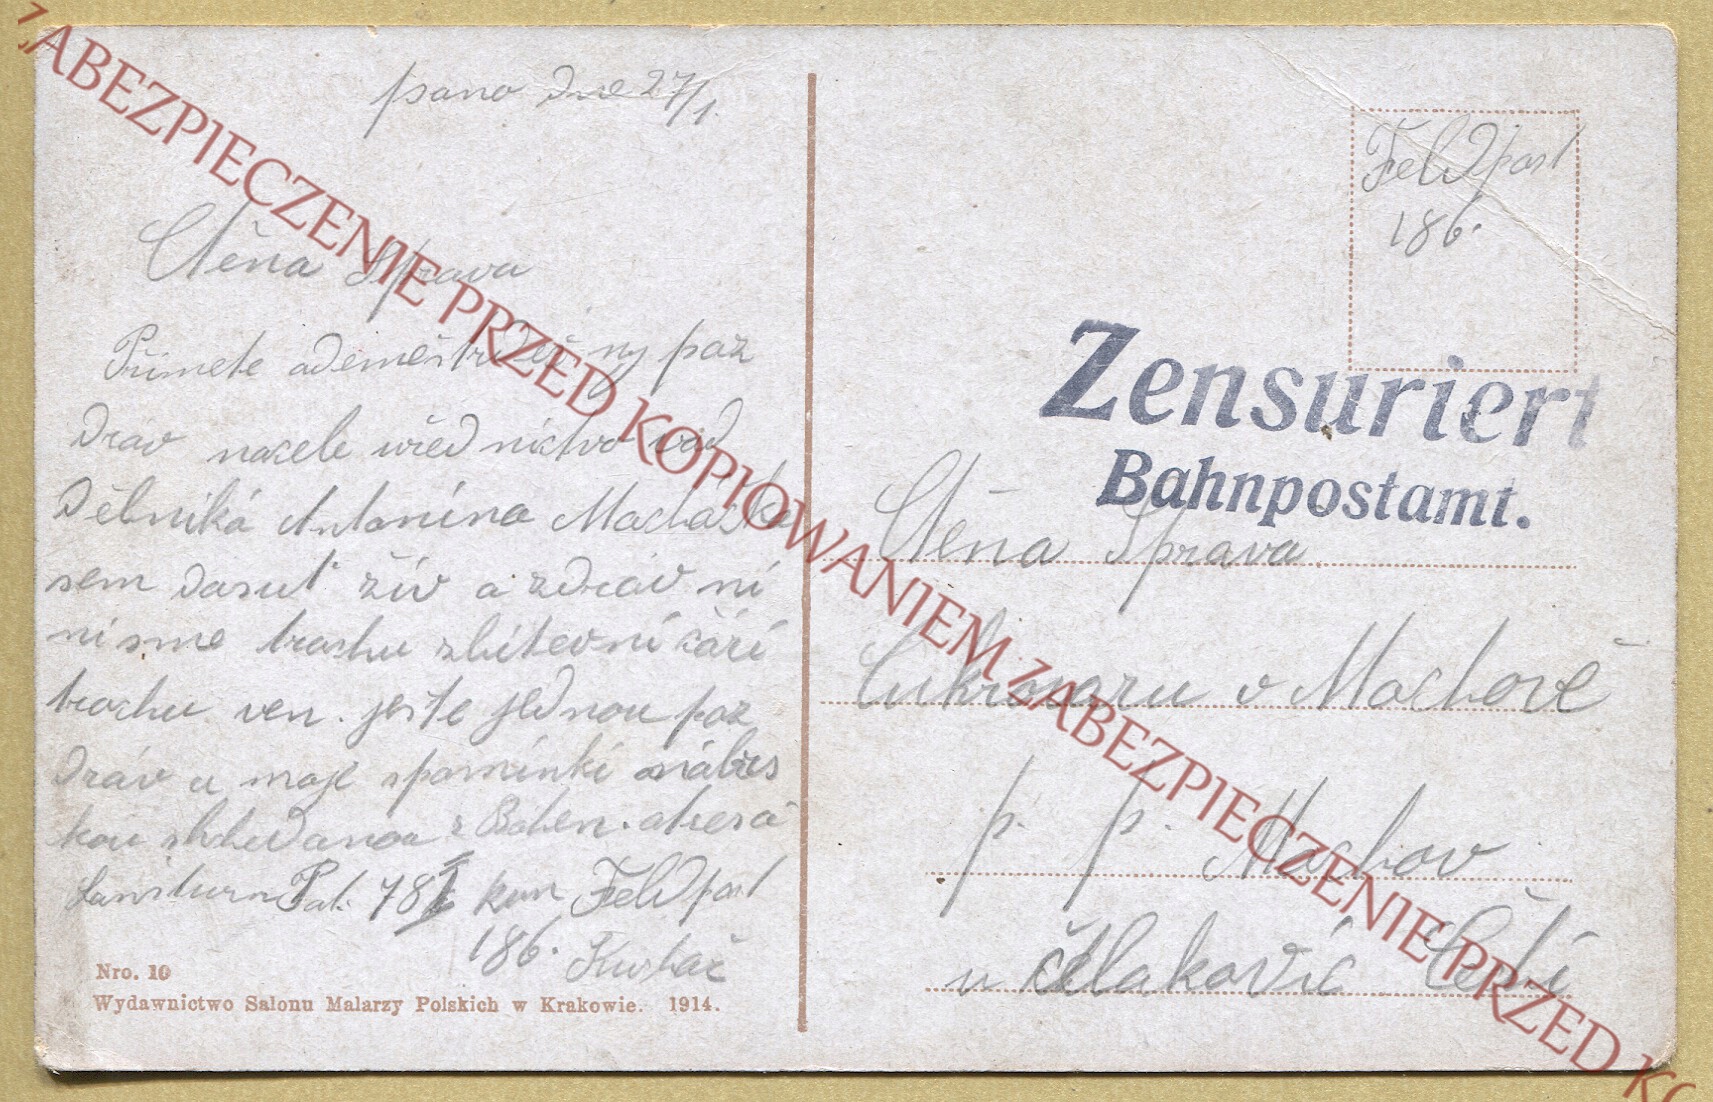 psano dne 27/1.
Ctěna Sprava
Přimete odemě ny poz
drav nacele uřed nictvo vad
Dělnika Antonína Macháčka
sem dasut živ a zdráv ní
ni sme trochu zbitevní čáři
trochu ven. jeste jednou poz
drav a moje spomínki
kou shledanou z Bohem. adresa
Lansturm Bat. 78 kum Feldpost
186.
Nro. 10
Wydawnictwo Salonu Malarzy Polskich w Krakowie. 1914.
Feldpost
186.
Zensuriert
Bahnpostamt.
Ctěna Sprava
Cukrovaru v Mochově
p. p. Mochov
u Čelakovic Češi
ZABEZPIECZENIE PRZED KOPIOWANIEM ZABEZPIECZENIE PRZED KO